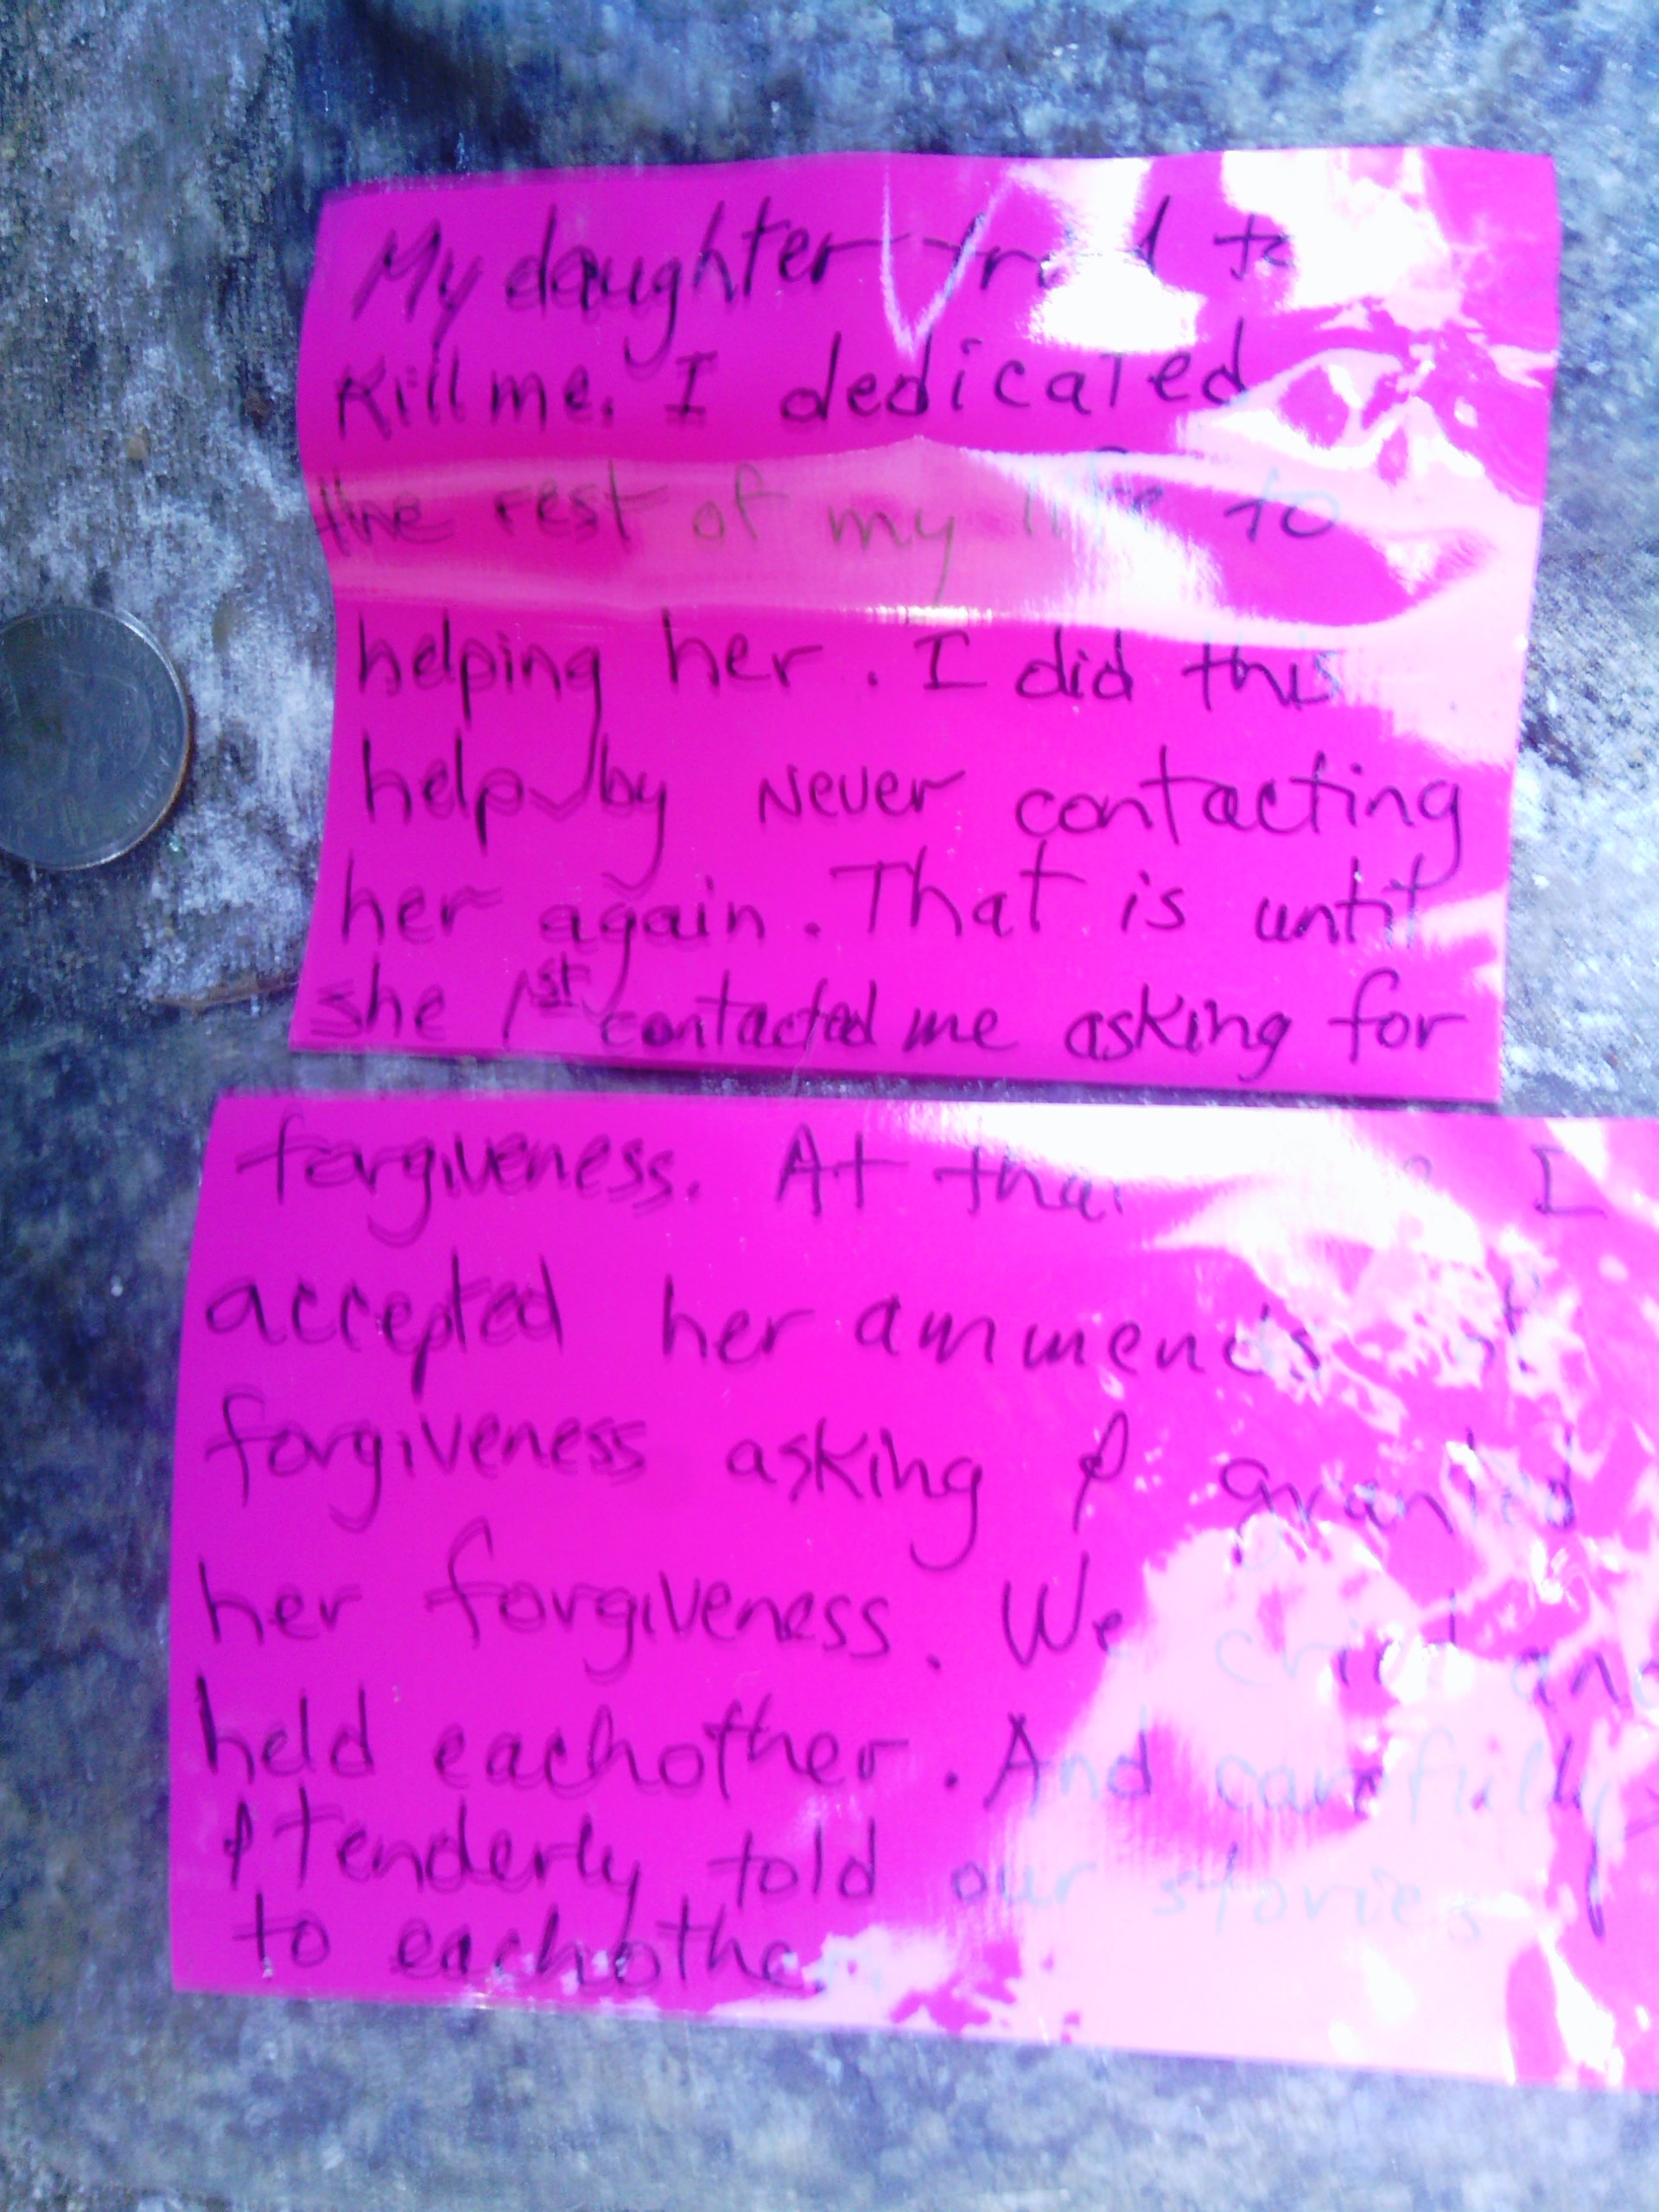 My daughter tried to
Kill me. I dedicated
the rest of my life to
helping her. I did this
help by Never contacting
her again. That is until
she 1st contacted me asking for
forgiveness. At that I
accepted her ammends of
forgiveness asking & granted
her forgiveness. We cried and
held eachother. And carefully
& tenderly told our stories
to eachother.